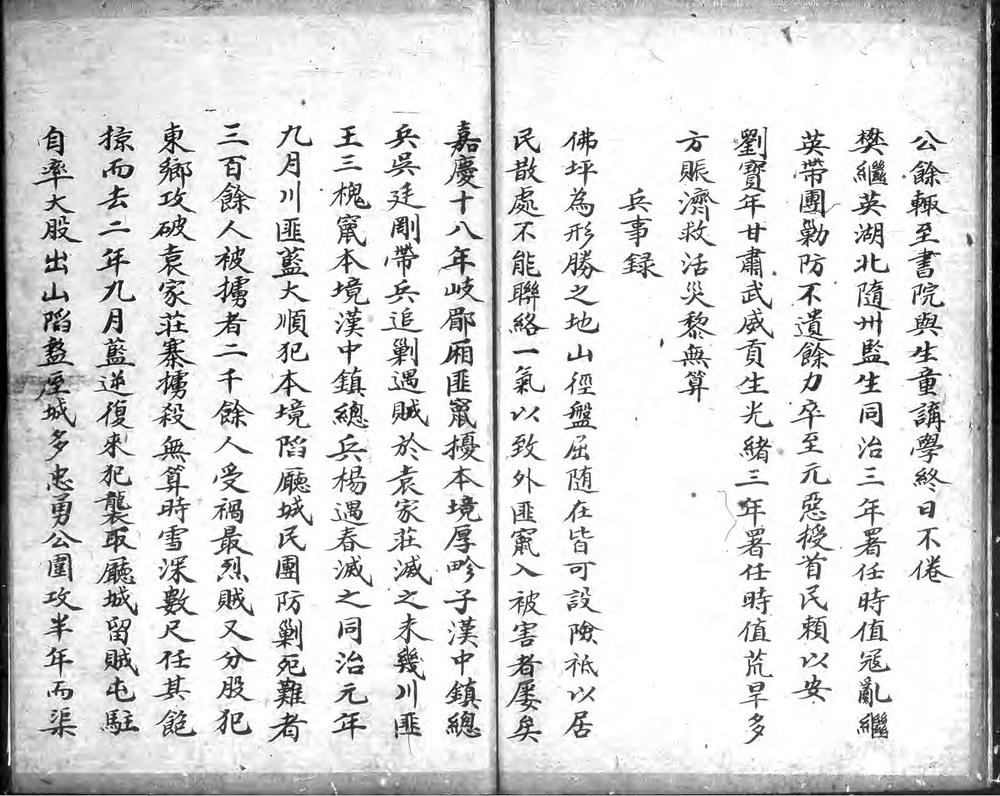 公餘輙至書院與生童講學終日不倦
樊繼英湖北隨州監生同治三年署任時值冦亂繼
英帶團勦防不遺餘力卒至元惡授首民賴以安
劉寶年甘肅武威貢生光緒三年署任時值荒旱多
方賬濟救活災黎無算
兵事録
佛坪為形勝之地山徑盤屈隨在皆可設險祇以居
民散處不能聯絡一氣以致外匪竄入被害者屡矣
嘉慶十八年岐郿厢匪竄擾本境厚畛子漢中鎮總
兵吳廷剛帶兵追剿遇賊於袁家莊滅之未幾川匪
王三槐竄本境漢中鎮總兵楊遇春滅之同治元年
九月川匪藍大順犯本境陷廳城民團防剿死難者
三百餘人被擄者二千餘人受禍最烈賊又分股犯
東鄉攻破袁家莊寨擄殺無算時雪深數尺任其飽
掠而去二年九月藍逆復來犯襲取廳城留賊屯駐
自率大股出山陷盩厔城多忠勇公圍攻半年而渠